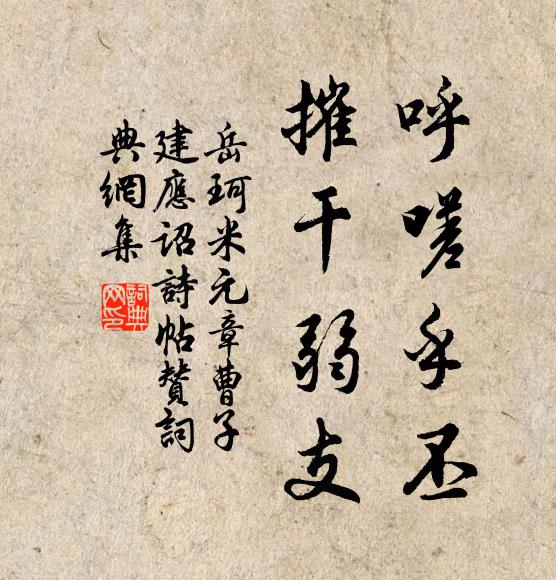 呼嗟乎丕
摧干弱支
岳珂米元章曹子
建應詔詩帖赞詞
典網集
詞典網印